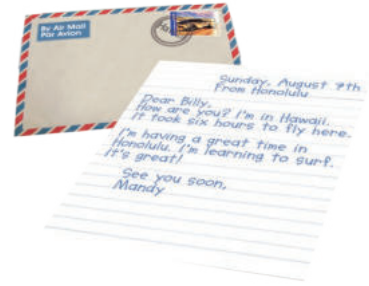 By Air Mail
Par Avion
Sunday, August 9th
From Honolulu
Dear Billy,
How are you? I'm in Hawaii.
It took six hours to fly here.
I'm having a great time in
Honolulu. I'm learning to surf.
It's great!
See you soon,
Mandy